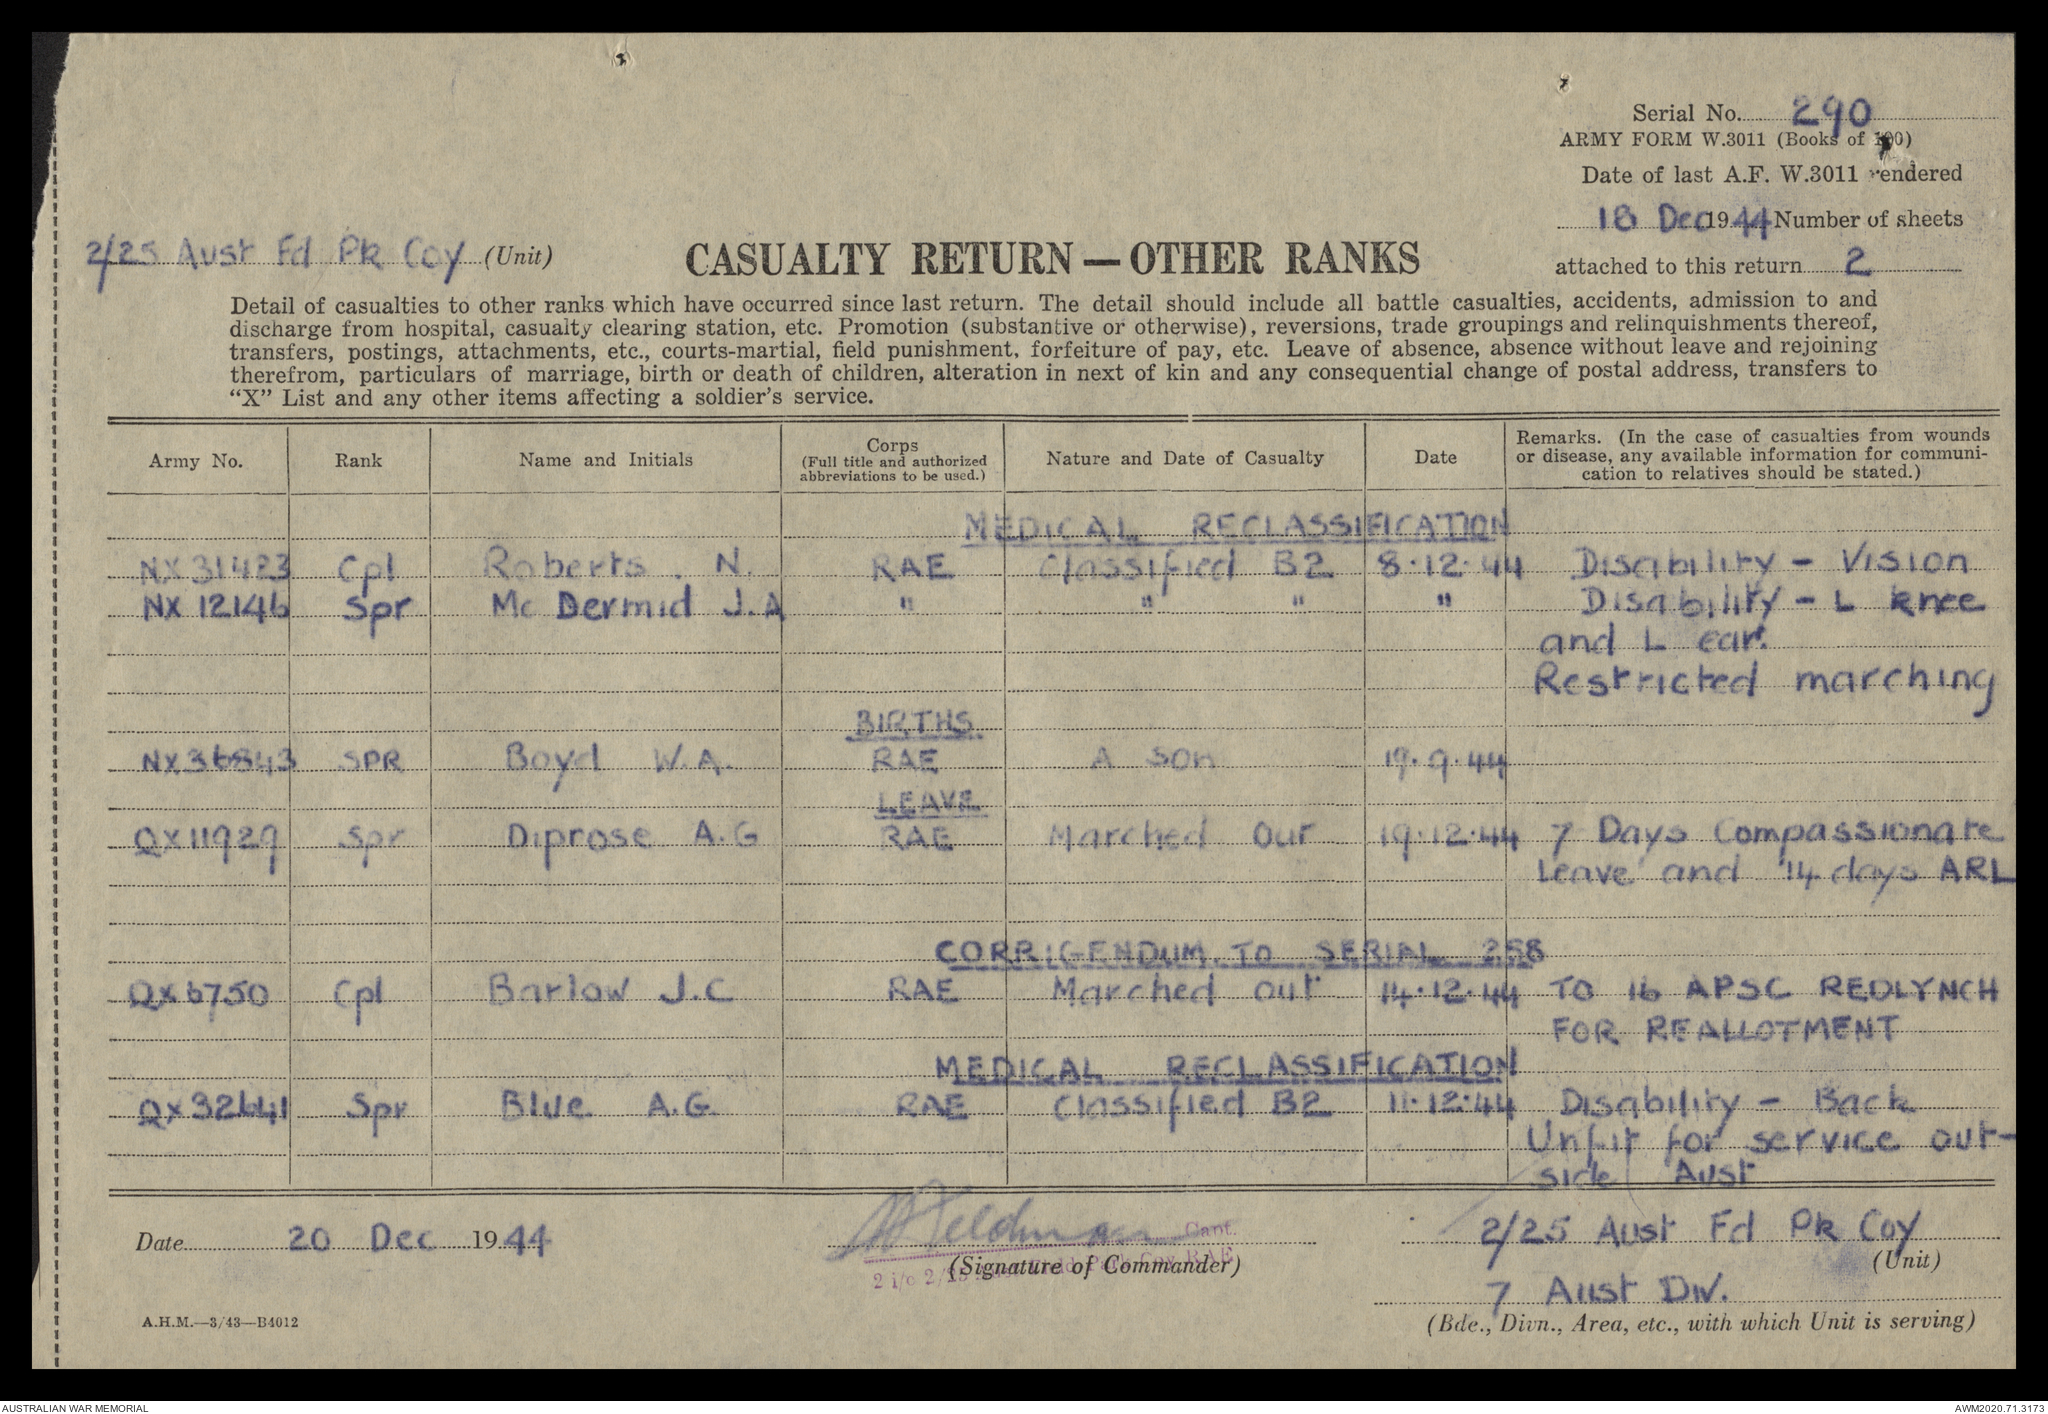 Serial No. 290
ARMY FORM W.3011 (Books of 100)
Date of last A.F. W.3011 rendered
18 Dec 1944 Number of sheets
attached to this return 2
2/25 Aust Fd Pk Coy (Unit)
CASUALTY RETURN — OTHER RANKS
Detail of casualties to other ranks which have occurred since last return. The detail should include all battle casualties, accidents, admission to and
discharge from hospital, casualty clearing station, etc. Promotion (substantive or otherwise), reversions, trade groupings and relinquishments thereof,
transfers, postings, attachments, etc., courts-martial, field punishment, forfeiture of pay, etc. Leave of absence, absence without leave and rejoining
therefrom, particulars of marriage, birth or death of children, alteration in next of kin and any consequential change of postal address, transfers to
"X" List and any other items affecting a soldier's service.
Army No. Rank Name and Initials Corps (Full title and authorized abbreviations to be used.) Nature and Date of Casualty Date Remarks. (In the case of casualties from wounds or disease, any available information for communi- cation to relatives should be stated.)
MEDICAL RECLASSIFICATION
NX 31423 Cpl Roberts . N. RAE Classified B2 8.12.44 Disability - Vision
NX 12146 Spr Mc Dermid J.A " " " " Disability - L knee
and L ear.
Restricted marching
BIRTHS
NX36843 SPR Boyd W.A. RAE A son 19.9.44
LEAVE
QX11929 Spr Diprose A.G RAE Marched Out 19.12.44 7 Days Compassionate
Leave and 14 days ARL
CORRIGENDUM TO SERIAL 258
QX6750 Cpl Barlow J.C RAE Marched out 14.12.44 TO 16 APSC REDLYNCH
FOR REALLOTMENT
MEDICAL RECLASSIFICATION
QX32641 Spr Blue A.G. RAE Classified B2 11.12.44 Disability - Back
Unfit for service out-
side Aust
Date 20 Dec 1944
Feldman Capt.
2 i/c 2/25 Aust Field Park Coy RAE
(Signature of Commander)
2/25 Aust Fd Pk Coy
(Unit)
7 Aust Div.
(Bde., Divn., Area, etc., with which Unit is serving)
A.H.M.—3/43—B4012
AUSTRALIAN WAR MEMORIAL
AWM2020.71.3173